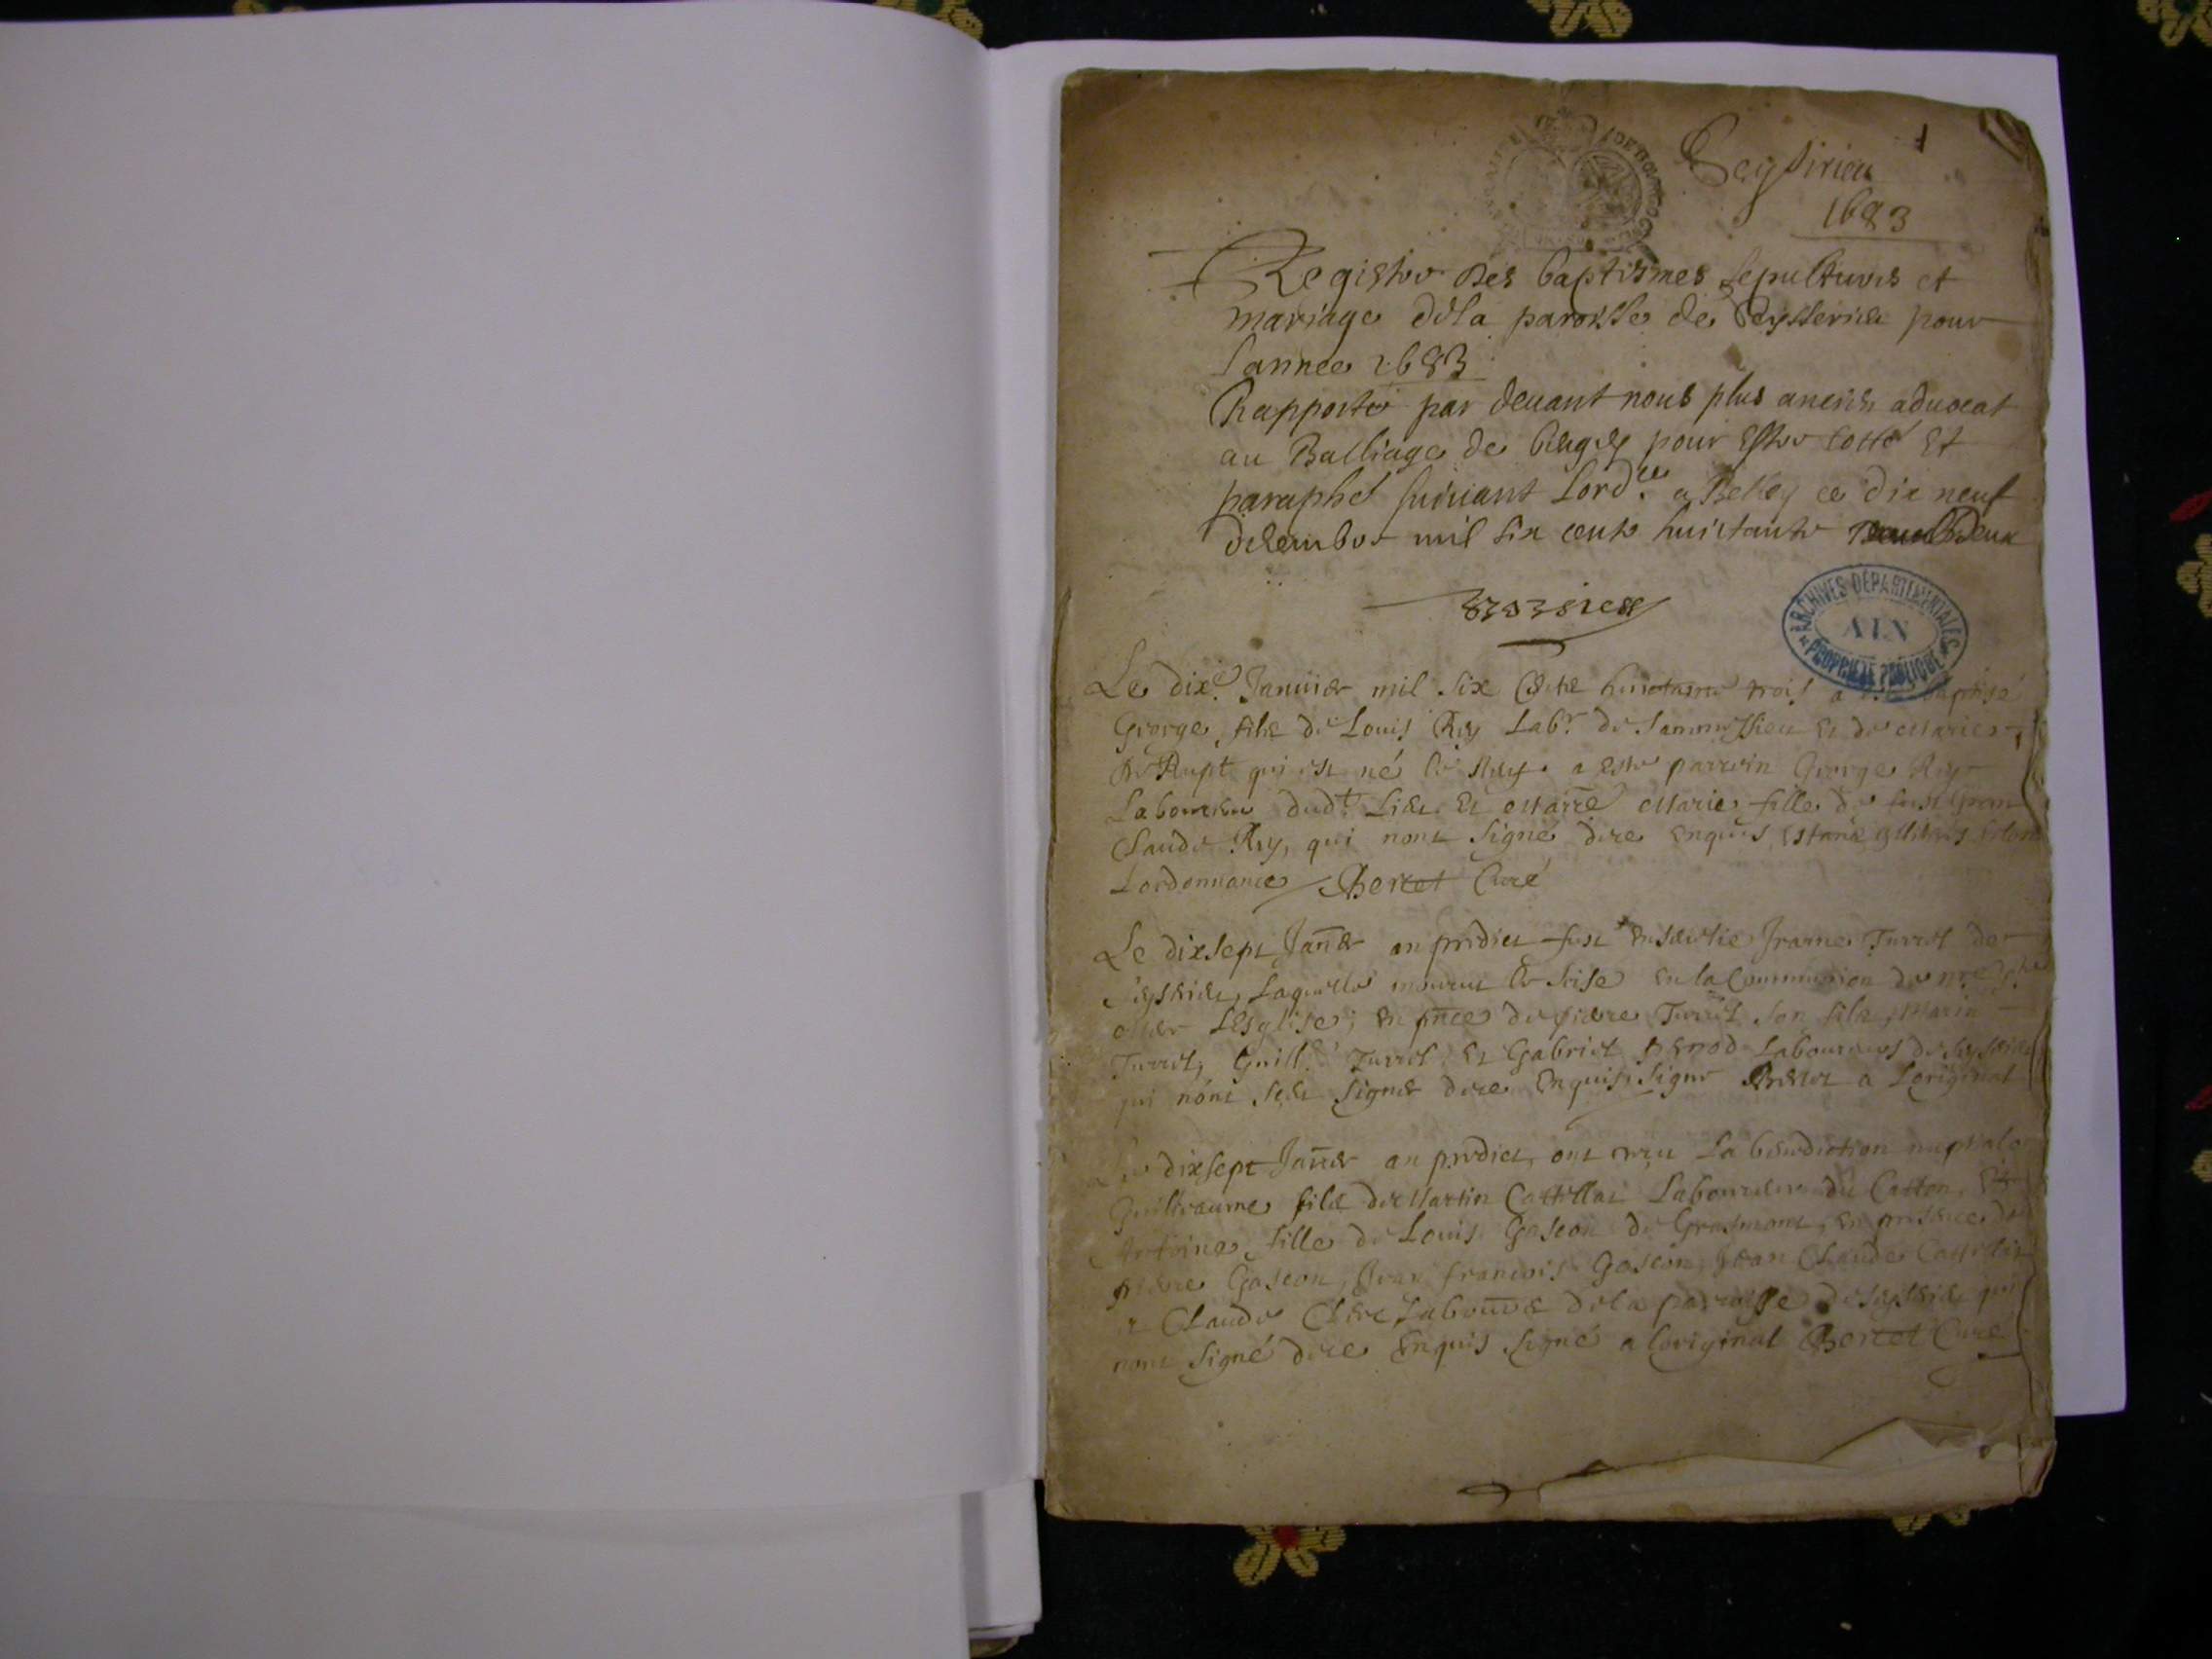 1
Seyssirieu
1683
Registre des baptismes sepultures et
mariage dela paroisse de Seysserieu pour
lannee 1683
Rapporté par devant nous plus ancien advocat
au Balliage de beugey pour estre cotté et
paraphé suivant lord.ce a Belley ce dix neuf
decembre mil six cents huictante deux
ARCHIVES DÉPARTEMENTALES
AIN
PROPRIÉTÉ PUBLIQUE
Le dix.e Janvier mil six cents huictante trois a baptisé
George, fils de Louis Rey Lab.r de et de Marie
qui est né le a esté parrein George Rey
Laboureur dud.t Lieu et Marre Marie fille de feu
Claude Rey, qui nont signé de ce enquis
Lordonnance Bertet Curé
Le dixsept Janer an predict fust ensevelie Turrel de
Laquelle mourut le seise en la Communion de nre
Mere LEsglise; en pnce de pierre Turrel son fils, Marin
Turrel, Guill.e Turrel, et Gabriel Laboureurs de
qui nont sceu signer de ce enquis, signe Bertet a Loriginal
Le dixsept Janer an predict, ont receu La benediction nuptiale
Guilleaume fils de Martin Laboureur du et
Antoina fille de Louis Gascon de en presence de
pierre Gascon, Jean francois Gascon, Jean Claude
et Claude Clerc Laboure dela paroisse de qui
nont signé de ce Enquis signé a loriginal Bertet Curé